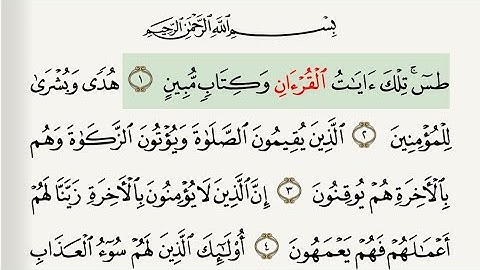 بِسْمِ اللَّهِ الرَّحْمَٰنِ الرَّحِيمِ
طسٓ ۚ تِلْكَ ءَايَٰتُ ٱلْقُرْءَانِ وَكِتَابٍ مُّبِينٍ ١ هُدًى وَبُشْرَىٰ
لِلْمُؤْمِنِينَ ٢ ٱلَّذِينَ يُقِيمُونَ ٱلصَّلَوٰةَ وَيُؤْتُونَ ٱلزَّكَوٰةَ وَهُم
بِٱلْءَاخِرَةِ هُمْ يُوقِنُونَ ٣ إِنَّ ٱلَّذِينَ لَا يُؤْمِنُونَ بِٱلْءَاخِرَةِ زَيَّنَّا لَهُمْ
أَعْمَٰلَهُمْ فَهُمْ يَعْمَهُونَ ٤ أُو۟لَٰٓئِكَ ٱلَّذِينَ لَهُمْ سُوٓءُ ٱلْعَذَابِ